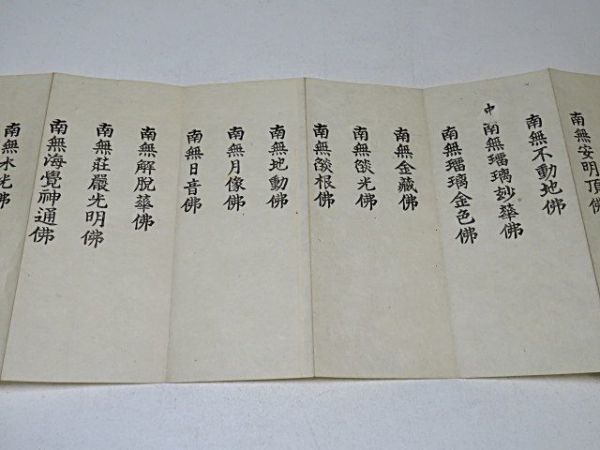 南無安明頂佛
南無不動地佛
中 南無瑠璃妙華佛
南無瑠璃金色佛
南無金藏佛
南無燄光佛
南無燄根佛
南無地動佛
南無月像佛
南無日音佛
南無解脫華佛
南無莊嚴光明佛
南無海覺神通佛
南無水光佛